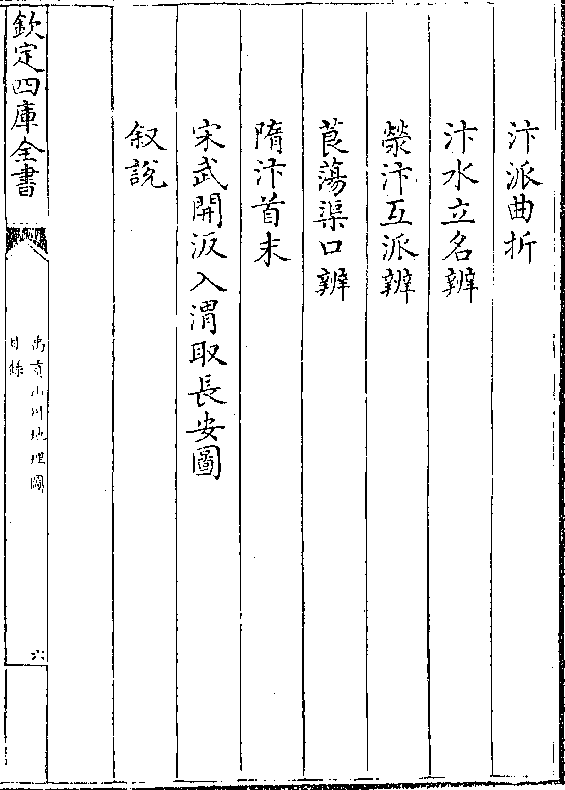 汴派曲折
汴水立名辨
滎汴互派辨
莨蕩渠口辨
隋汴首末
宋武開汳入渭取長安圖
叙說
欽定四庫全書
禹貢山川地理圖
目錄
六